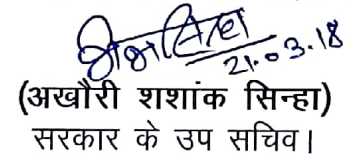 21.03.18
(अखौरी शशांक सिन्हा)
सरकार के उप सचिव।